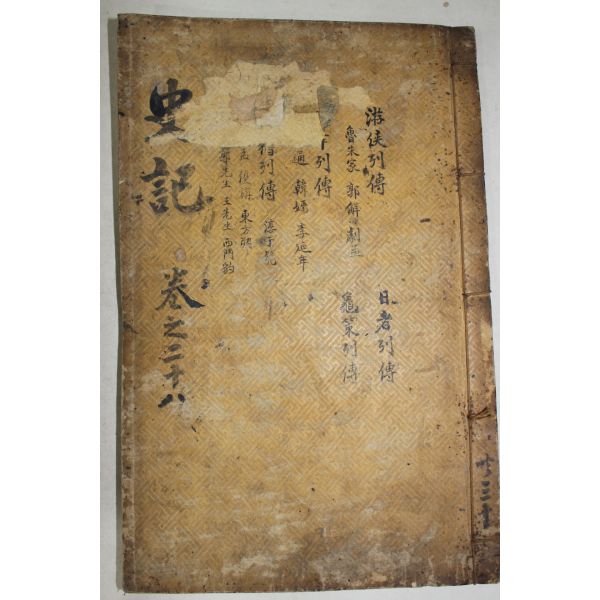 史記 卷之二十八
游俠列傳 日者列傳
魯朱家 郭解 劇孟 龜策列傳
列傳
通 韓嫣 李延年
稽列傳 淳于髡
孟 優旃 東方朔
先生 王先生 西門豹
共三十